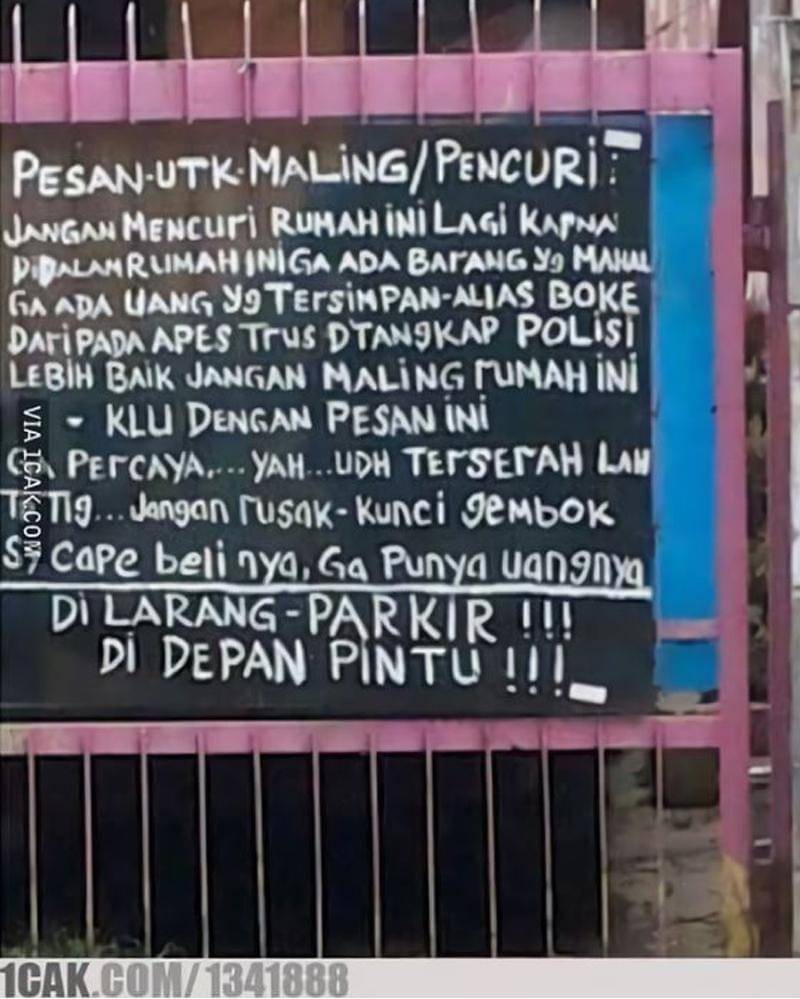 PESAN-UTK-MALING/PENCURI:
JANGAN MENCURI RUMAH INI LAGI KARNA
DIDALAM RUMAH INI GA ADA BARANG Yg MAHAL
GA ADA UANG Yg TERSIMPAN-ALIAS BOKE
DARIPADA APES TRUS DTANGKAP POLISI
LEBIH BAIK JANGAN MALING RUMAH INI
- KLU DENGAN PESAN INI
GA PERCAYA.... YAH...UDH TERSERAH LAH
TpTlg... Jangan rusak-kunci gembok
Sy Cape beli nya, Ga Punya uangnya
Di LARANG-PARKIR !!!
Di DEPAN PINTU !!!
VIA 1CAK.COM
1CAK.COM/1341888